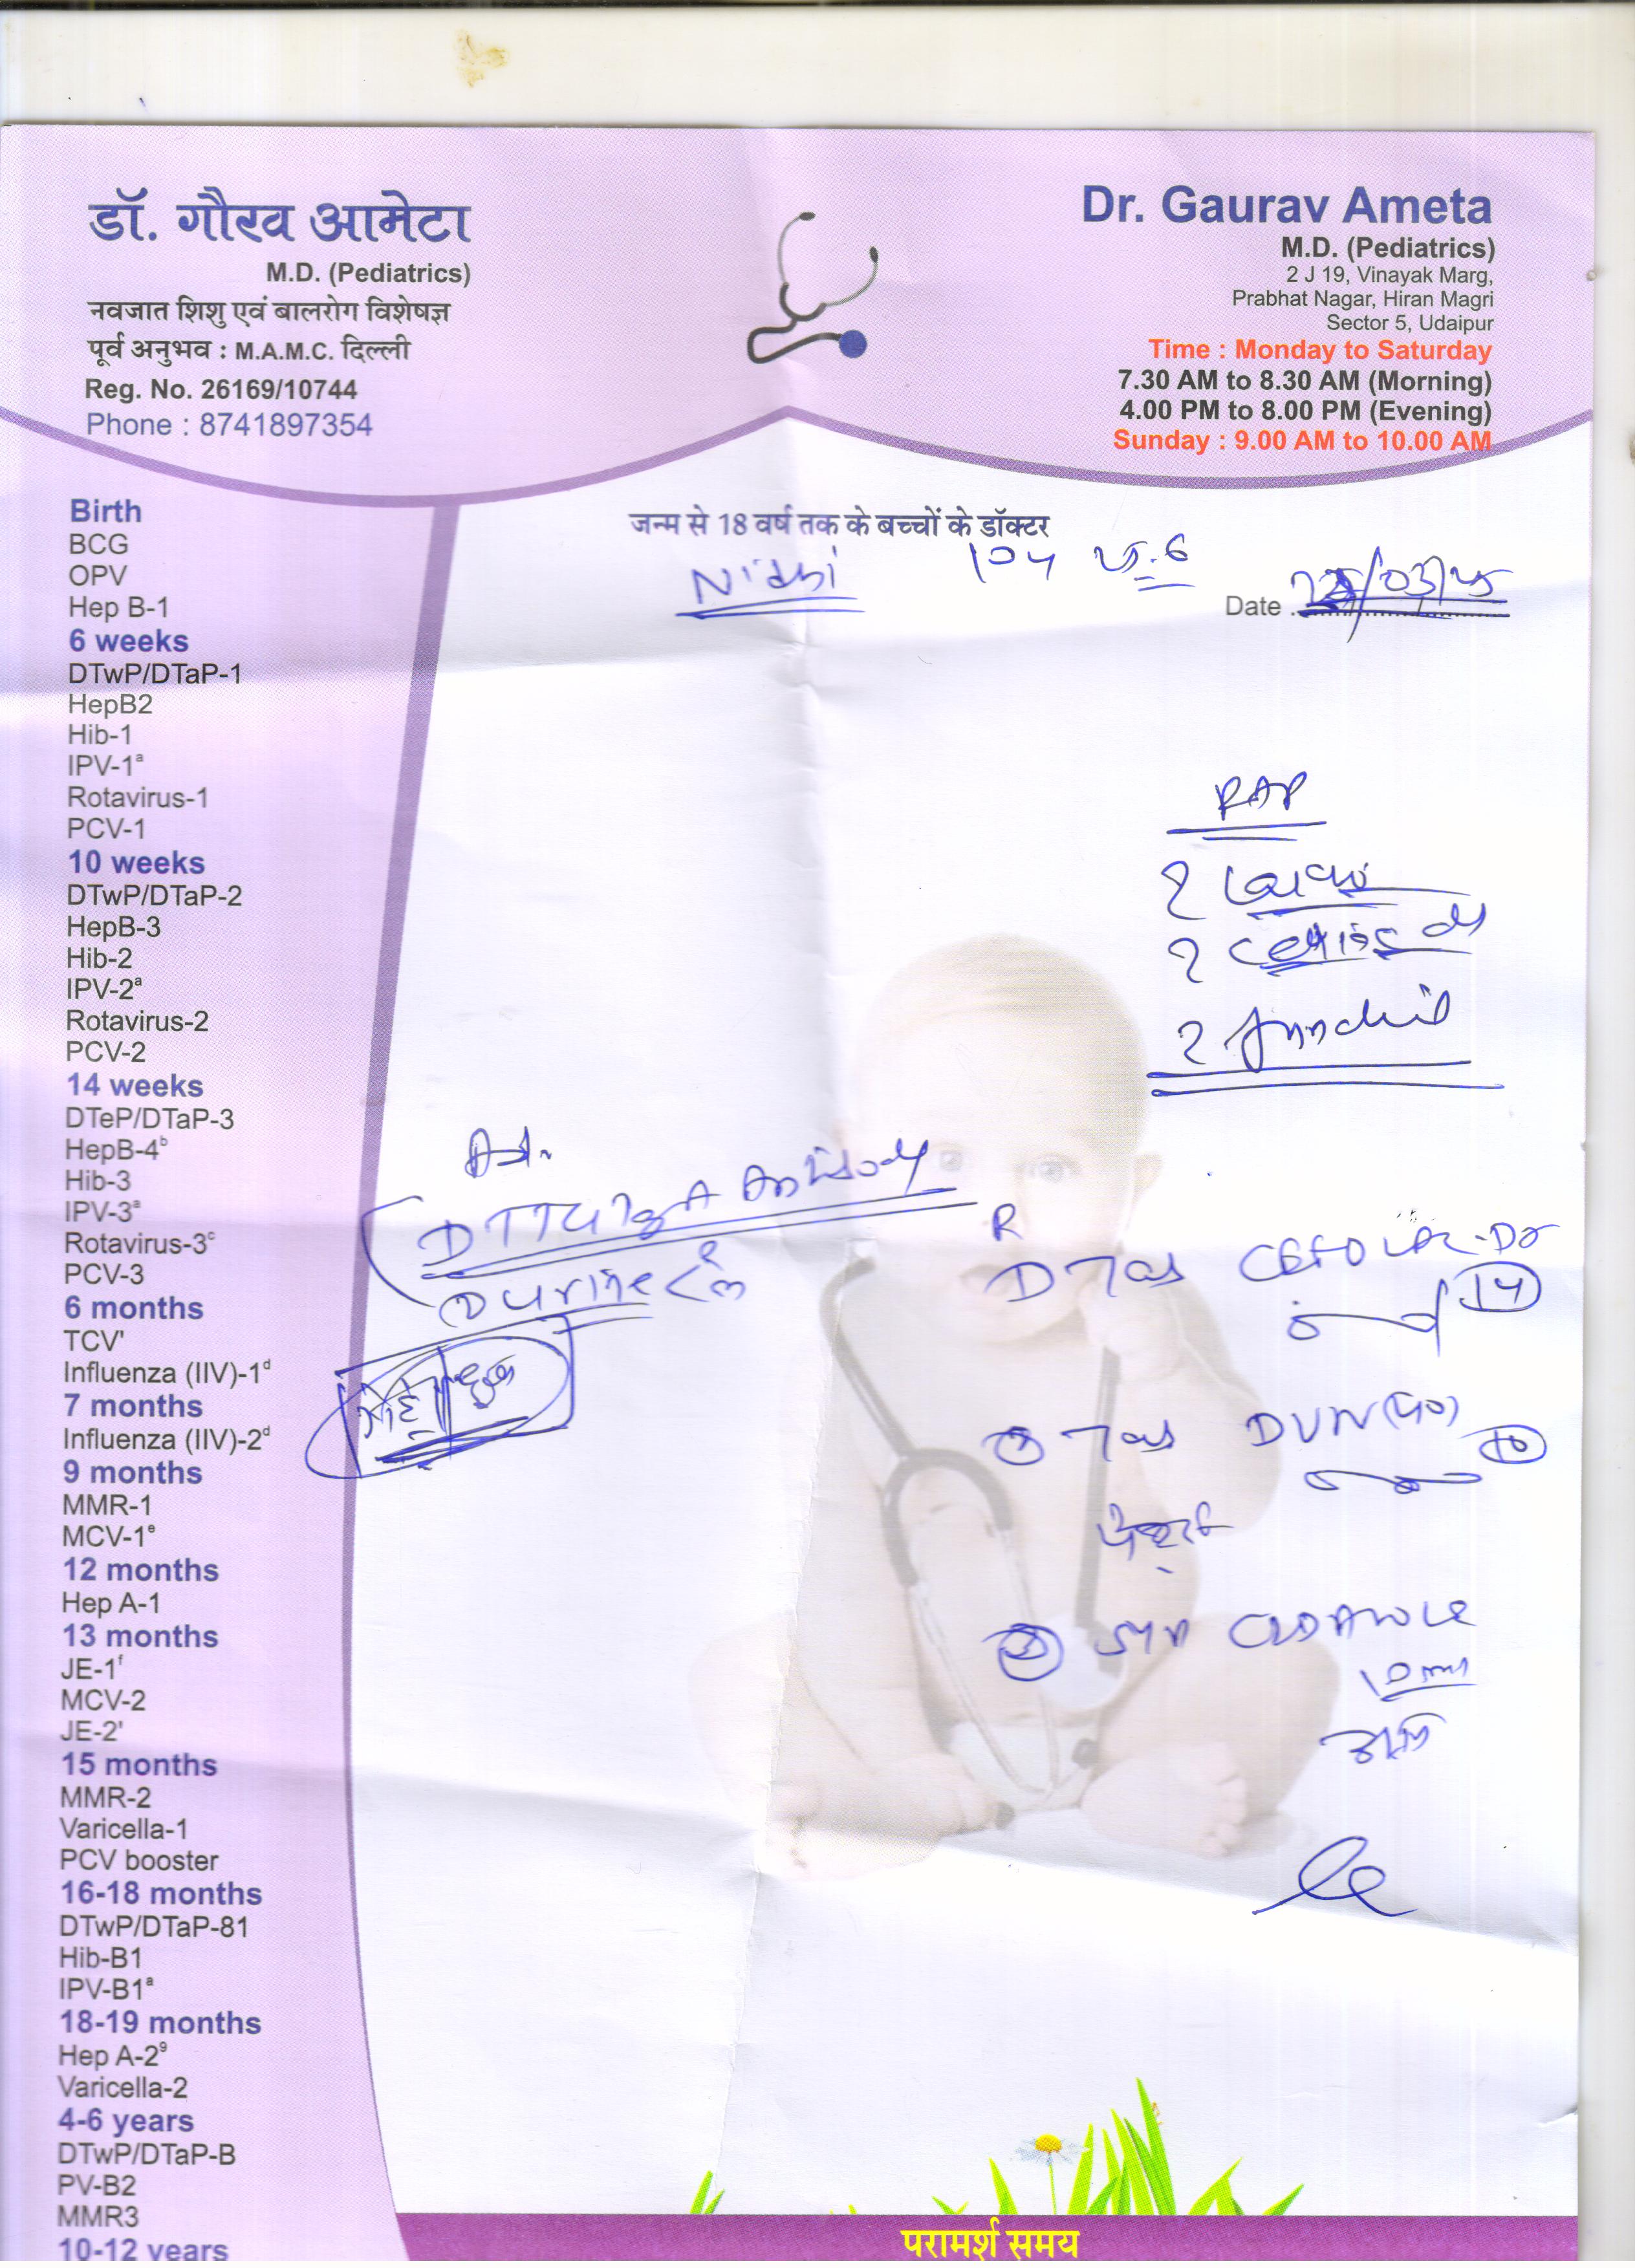 डॉ. गौरव आमेटा
M.D. (Pediatrics)
नवजात शिशु एवं बालरोग विशेषज्ञ
पूर्व अनुभव : M.A.M.C. दिल्ली
Reg. No. 26169/10744
Phone : 8741897354
Dr. Gaurav Ameta
M.D. (Pediatrics)
2 J 19, Vinayak Marg,
Prabhat Nagar, Hiran Magri
Sector 5, Udaipur
Time : Monday to Saturday
7.30 AM to 8.30 AM (Morning)
4.00 PM to 8.00 PM (Evening)
Sunday : 9.00 AM to 10.00 AM
जन्म से 18 वर्ष तक के बच्चों के डॉक्टर
Nidhi 10y
Date
Birth
BCG
OPV
Hep B-1
6 weeks
DTwP/DTaP-1
HepB2
Hib-1
IPV-1ª
Rotavirus-1
PCV-1
10 weeks
DTwP/DTaP-2
HepB-3
Hib-2
IPV-2ª
Rotavirus-2
PCV-2
14 weeks
DTeP/DTaP-3
HepB-4ᵇ
Hib-3
IPV-3ª
Rotavirus-3ᶜ
PCV-3
6 months
TCV'
Influenza (IIV)-1ᵈ
7 months
Influenza (IIV)-2ᵈ
9 months
MMR-1
MCV-1ᵉ
12 months
Hep A-1
13 months
JE-1ᶠ
MCV-2
JE-2'
15 months
MMR-2
Varicella-1
PCV booster
16-18 months
DTwP/DTaP-81
Hib-B1
IPV-B1ª
18-19 months
Hep A-2⁹
Varicella-2
4-6 years
DTwP/DTaP-B
PV-B2
MMR3
10-12 years
RAP
Ad.
TTG IgA Antibody
Urine
R
Tab
Tab
10ml
परामर्श समय